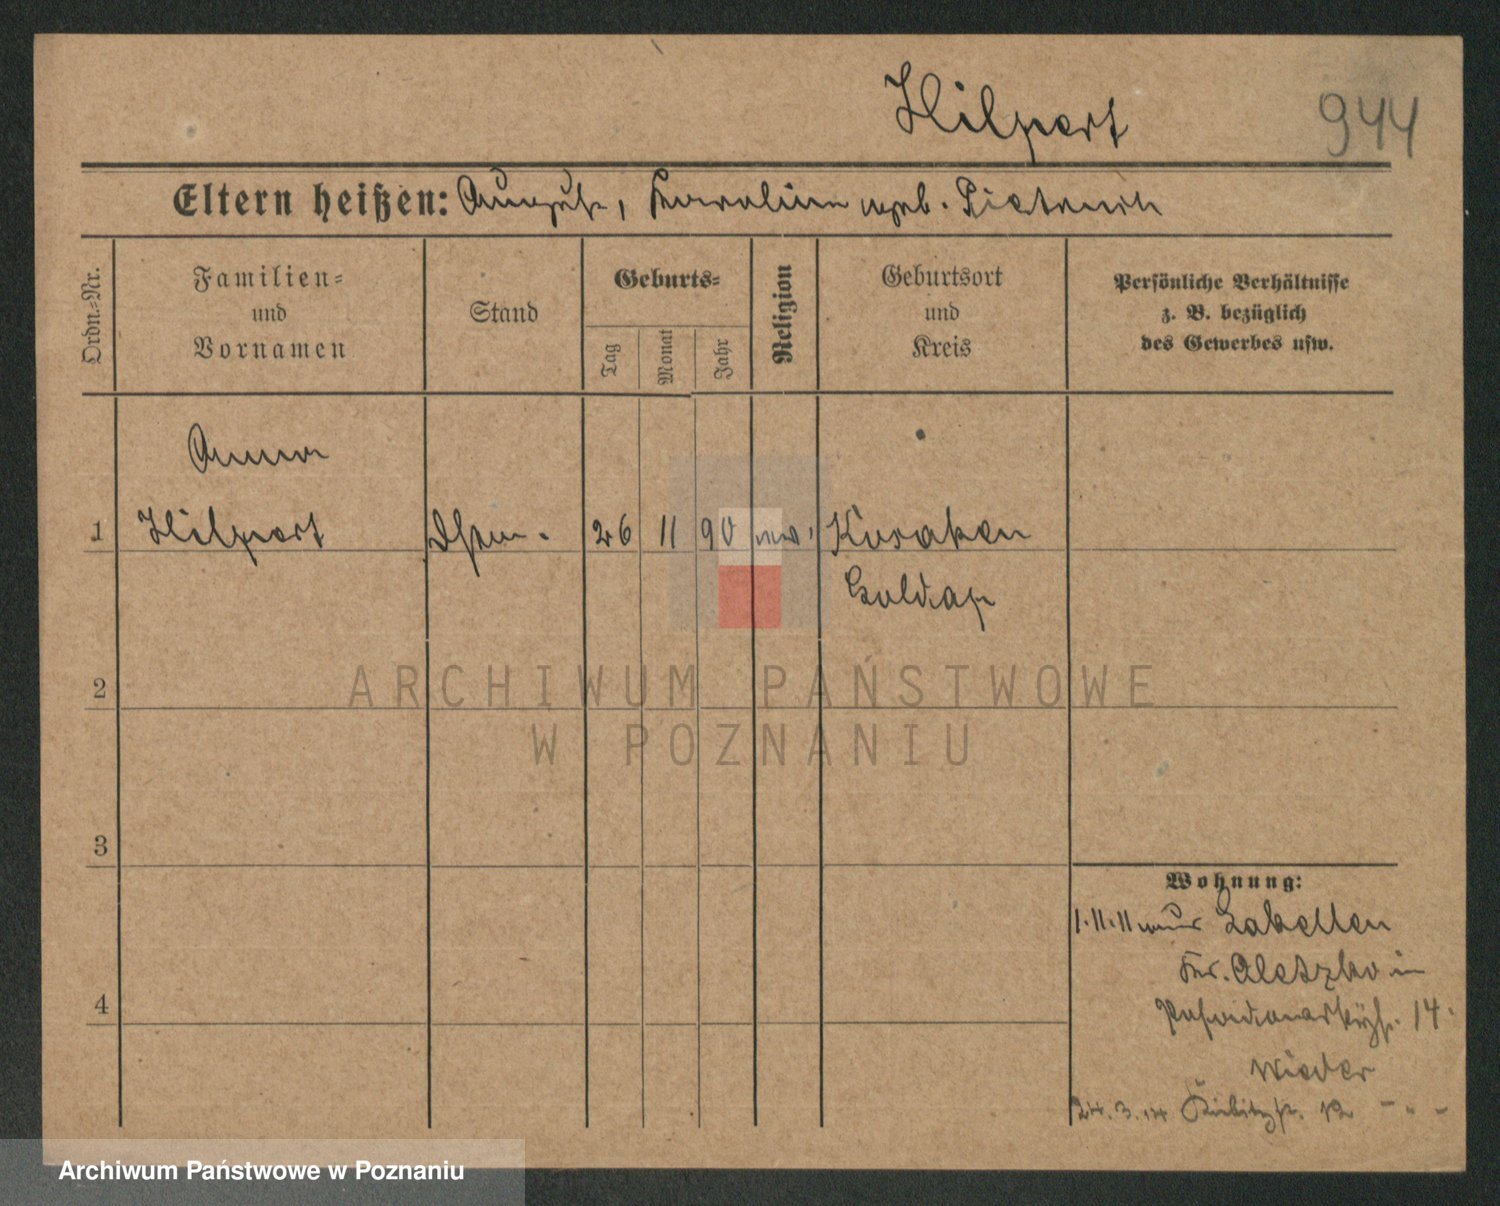 Hilpert 944
Eltern heißen: August, Karoline geb.
Ordn.-Nr.
Familien-
und
Vornamen
Stand
Geburts-
Tag
Monat
Jahr
Religion
Geburtsort
und
Kreis
Persönliche Verhältnisse
z. B. bezüglich
des Gewerbes usw.
Anna
1 Hilpert 26 11 90 Kosaken
Goldap
2
3
4
Wohnung:
1.11.11 aus
Kr. Oletzko in
14.
wieder
24.3.14 Kiebitzstr. 12
ARCHIWUM PAŃSTWOWE
W POZNANIU
Archiwum Państwowe w Poznaniu